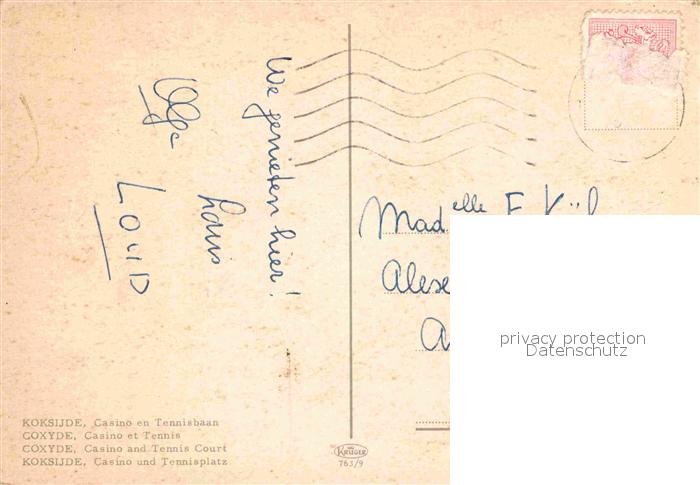 We genieten hier!
Louis
Olga
Mad elle E. K
Alexe
A
privacy protection
Datenschutz
KOKSIJDE, Casino en Tennisbaan
COXYDE, Casino et Tennis
COXYDE, Casino and Tennis Court
KOKSIJDE, Casino und Tennisplatz
KRÜGER
763/9